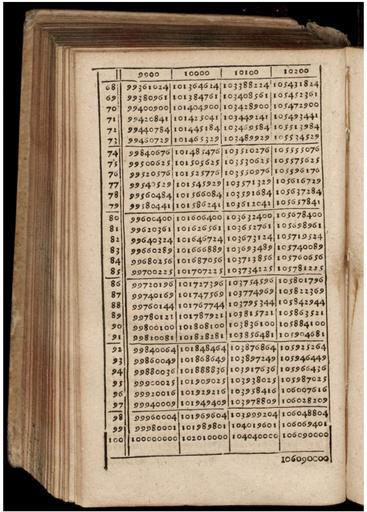 9900 10000 10100 10200
68 99361024 101364624 103388224 105431824
69 99380961 101384761 103408561 105452361
70 99400900 101404900 103428900 105472900
71 99420841 101425041 103449241 105493441
72 99440784 101445184 103469584 105513984
73 99460729 101465329 103489929 105534529
74 101485476 103510276 105555076
75 99500625 101505625 103530625 105575625
76 99520576 101525776 103550976 105596176
77 99540529 101545929 103571329 105616729
78 99560484 101566084 103591684 105637284
79 99580441 101586241 103612041 105657841
80 99600400 101606400 103632400 105678400
81 99620361 101626561 103652761 105698961
82 99640324 101646724 103673124 105719524
83 99660289 101666889 103693489 105740089
84 99680256 101687056 103713856 105760656
85 99700225 101707225 103734225 105781225
86 99720196 101727396 103754596 105801796
87 99740169 101747569 103774969 105822369
88 99760144 101767744 103795344 105842944
89 99780121 101787921 103815721 105863521
90 99800100 101808100 103836100 105884100
91 99820081 101828281 103856481 105904681
92 99840064 101848464 103876864 105925264
93 99860049 101868649 103897249
94 99880036 101888836 103917636 105966436
95 99900025 101909025 103938025 105987025
96 99920016 101929216 103958416 106007616
97 99940009 101949409 103978809 106028209
98 99960004 101969604 103999204 106048804
99 99980001 101989801 104019601 106069401
100 100000000 102010000 104040000 106090000
106090000